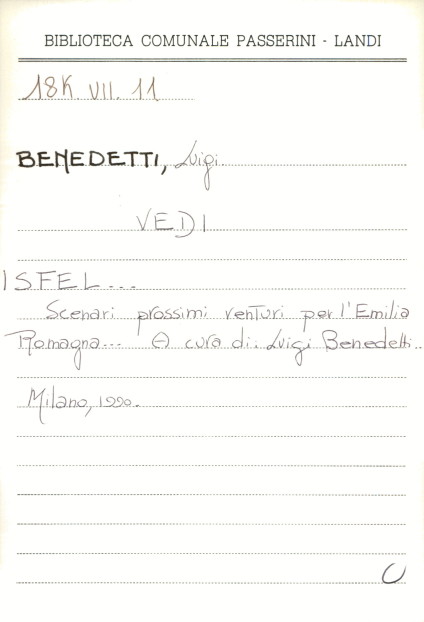 BIBLIOTECA COMUNALE PASSERINI - LANDI
18K. VII. 11
BENEDETTI, Luigi
VEDI
ISFEL...
Scenari prossimi venturi per l'Emilia
Romagna... A cura di: Luigi Benedetti..
Milano, 1990.
U